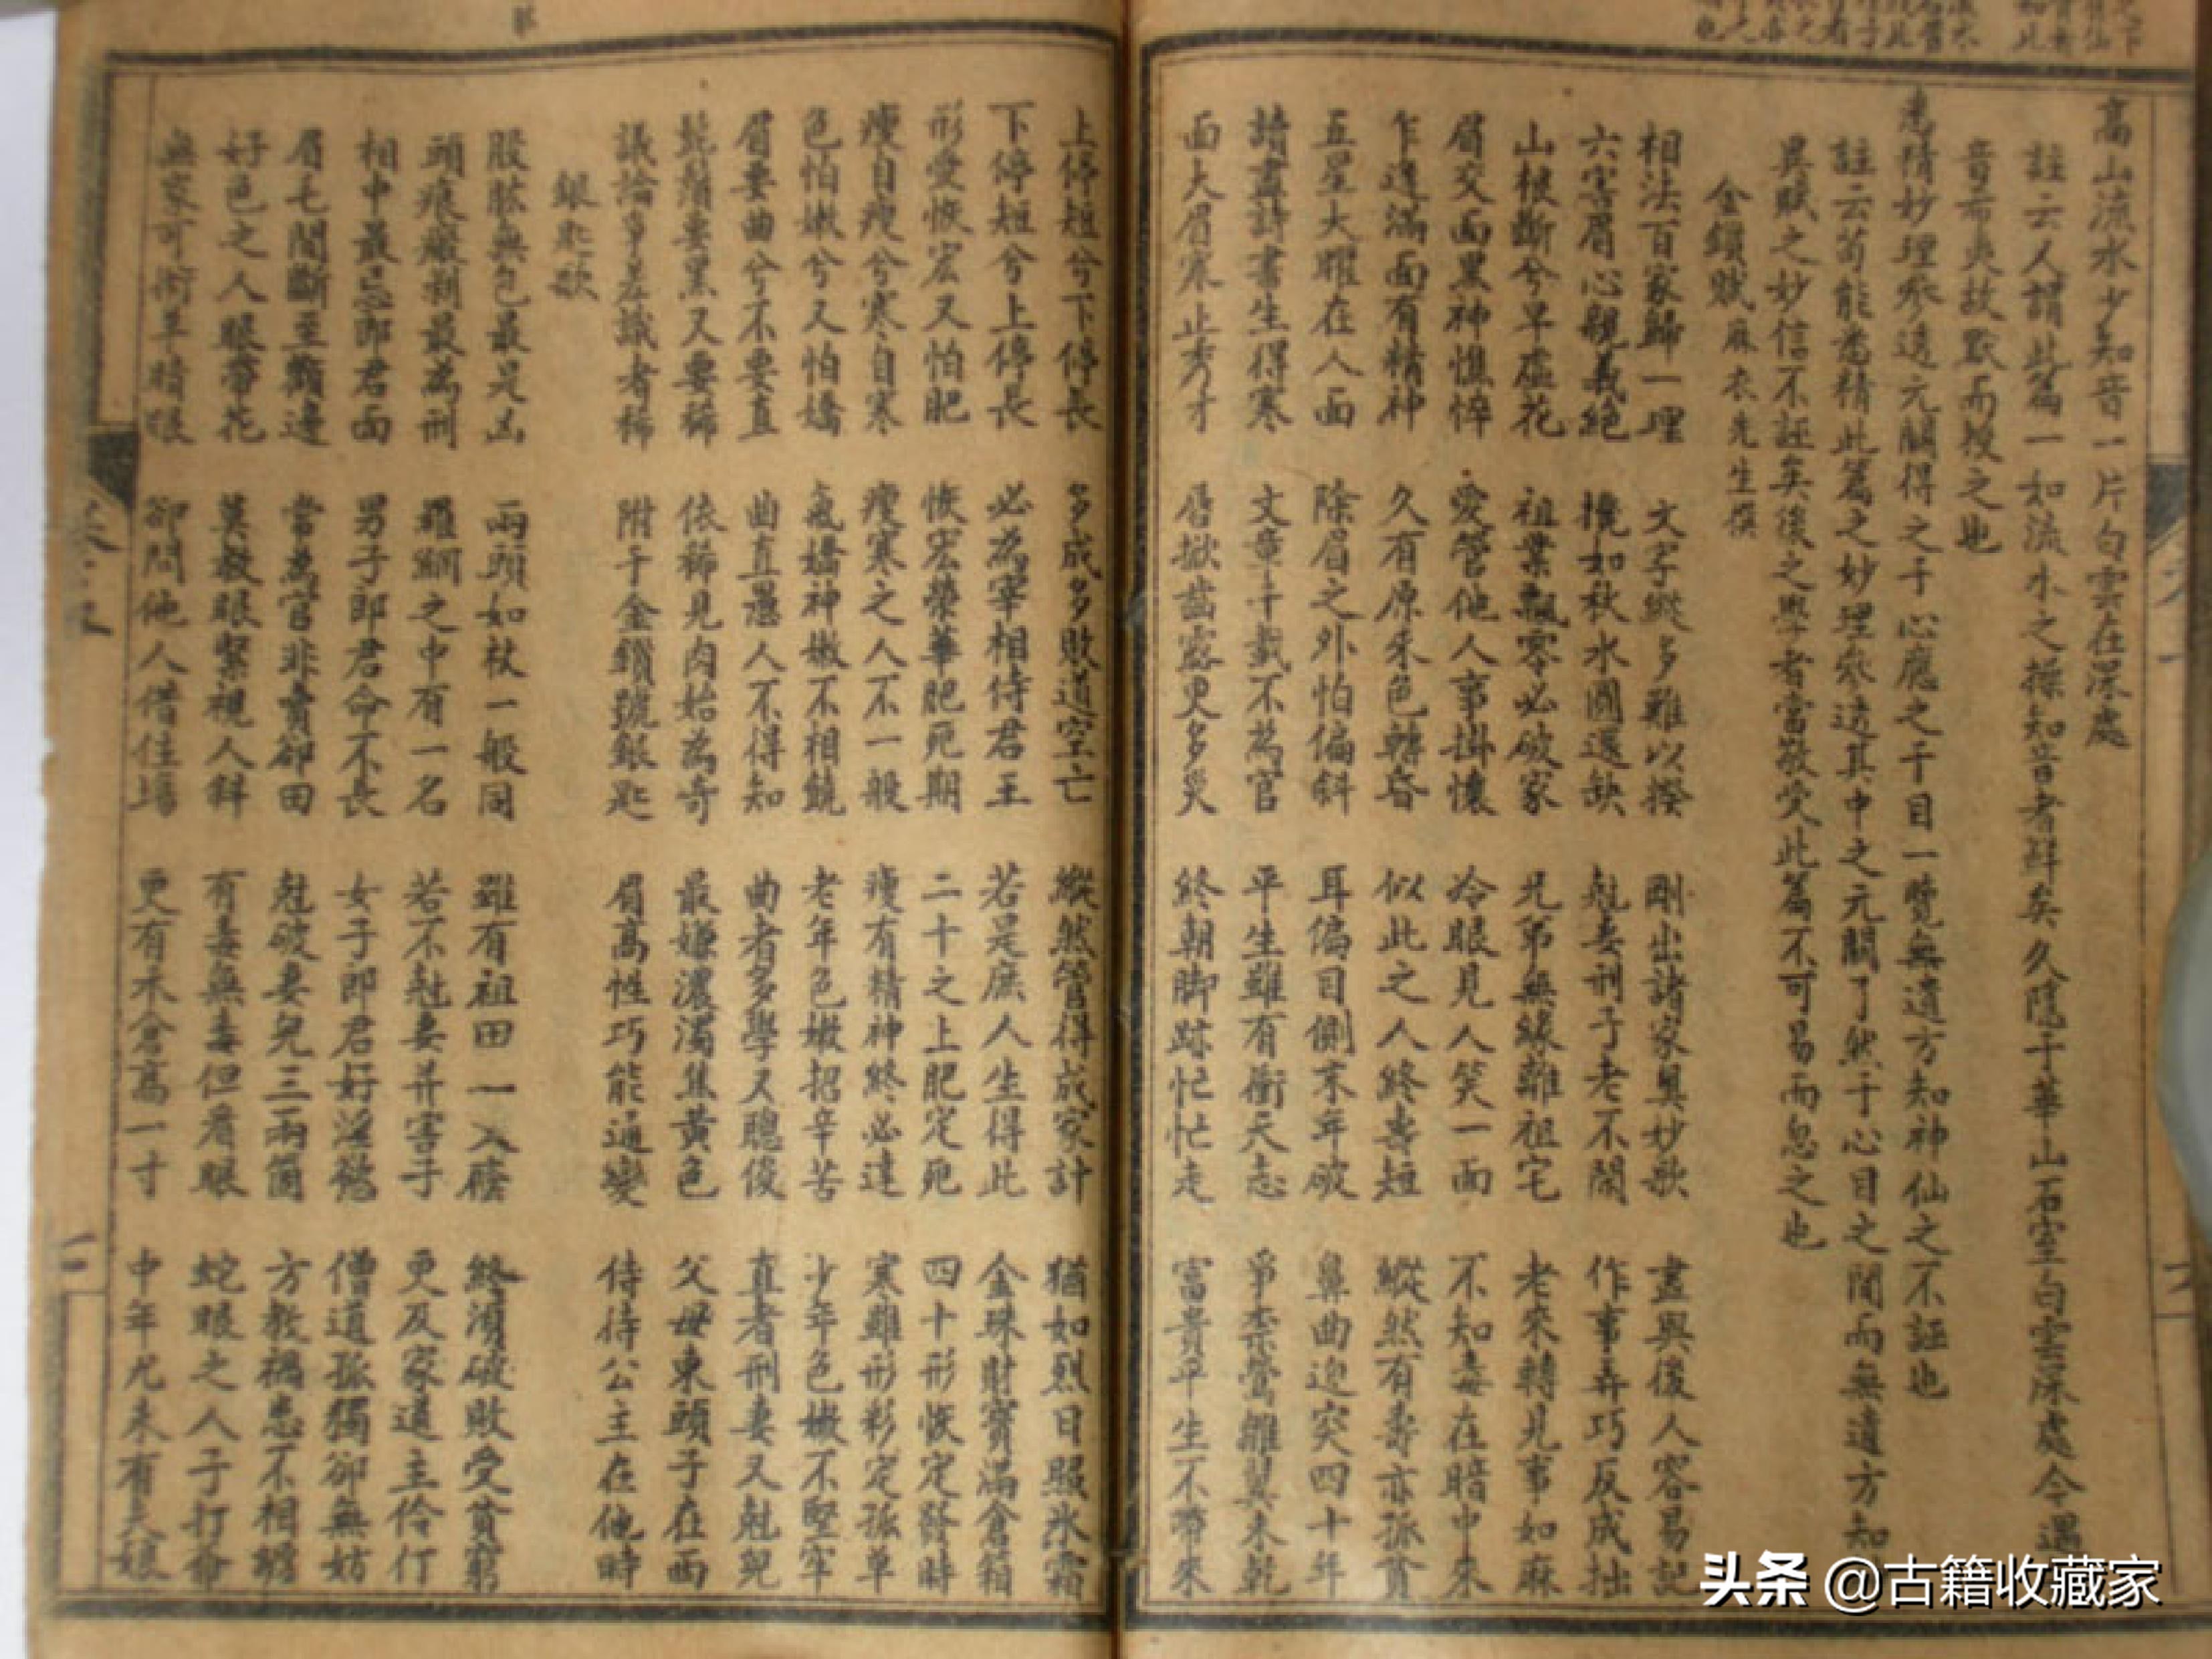 高山流水少知音一片白雲在深處
註云人謂此篇一如流水之操知音者鮮矣久隱于華山石室白雲深處今遇
音希夷故默而授之也
悉精妙理參透元關得之于心應之于目一覽無遺方知神仙之不誣也
註云苟能悉精此篇之妙理參透其中之元關了然于心目之間而無遺方知
異賦之妙信不誣矣後之學者當敬受此篇不可易而忽之也
金鎖賦 麻衣先生撰
相法百家歸一理 文字縱多難以揆 刪出諸家奧妙歌 盡與後人容易記
六害眉心親義絕 攙如秋水圓還缺 尅妻刑子老不閒 作事弄巧反成拙
山根斷兮早虛花 祖業飄零必破家 兄弟無緣離祖宅 老來轉見事如麻
眉交面黑神憔悴 愛管他人事掛懷 冷眼見人笑一面 不知毒在暗中來
乍逢滿面有精神 久看原來色轉昏 似此之人終壽短 縱然有壽亦孤貧
五星六曜在人面 除眉之外怕偏斜 耳偏目側末年破 鼻曲迎突四十年
讀盡詩書生得寒 文章千載不為官 平生雖有衝天志 爭柰鶯雛翼未乾
面大眉寒止秀才 唇掀齒露更多災 終朝脚跡忙忙走 富貴平生不帶來
上停短兮下停長 多成多敗道空亡 縱然管得成家計 猶如烈日照氷霜
下停短兮上停長 必為宰相侍君王 若是庶人生得此 金珠財寶滿倉箱
形愛恢宏又怕肥 恢宏榮華肥死期 二十之上肥定死 四十形恢定發時
瘦自瘦兮寒自寒 瘦寒之人不一般 瘦有精神終必達 寒雖形彩定孤單
色怕嫩兮又怕嬌 氣嬌神嫩不相饒 老年色嫩招辛苦 少年色嫩不堅牢
眉要曲兮不要直 曲直愚人不得知 曲者多學又聰俊 直者刑妻又尅兒
髭鬚要黑又要稀 依稀見肉始為奇 最嫌濃濁焦黃色 父母東頭子在西
議論爭差識者稀 附于金鎖號銀匙 眉高性巧能通變 侍待公主在他時
銀匙歌
股肱無包最是凶 兩頭如杖一般同 雖有祖田一入廕 終須破敗受貧窮
頭痕癥刺最為刑 羅網之中有一名 若不尅妻并害子 更及家道主伶仃
相中最忌郎君面 男子郎君命不長 女子郎君好淫慾 僧道孤獨卻無妨
眉毛間斷至顴邊 當為官非賣卻田 尅破妻兒三兩個 方教禍患不相纏
好色之人眼帶花 莫教眼緊視人斜 有毒無毒但看眼 蛇眼之人子打爺
無家可 卻問他人借住場 更有禾倉高一寸 中年尤未有夫娘
頭条 @古籍收藏家